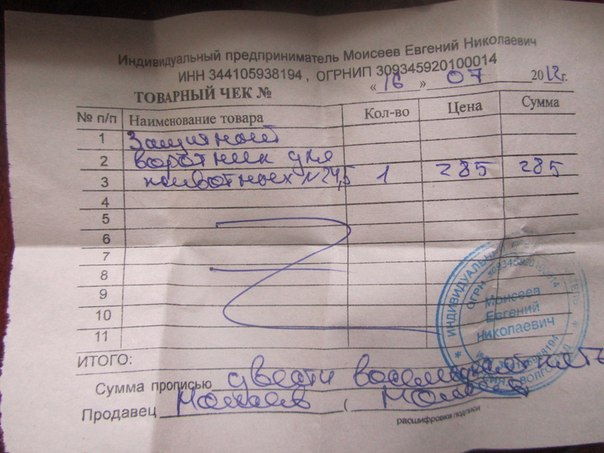 Индивидуальный предприниматель Моисеев Евгений Николаевич
ИНН 344105938194 , ОГРНИП 309345920100014
ТОВАРНЫЙ ЧЕК № « 16 » 07 2012г.
№ п/п Наименование товара Кол-во Цена Сумма
1 Защитный
2 воротник для
3 животных №24,5 1 285 285
4
5
6
7
8
9
10
11
ИТОГО:
Сумма прописью двести восемьдесят пять
Продавец Моисеев (
расшифровка подписи
ИНДИВИДУАЛЬНЫЙ
Моисеев
Евгений
Николаевич